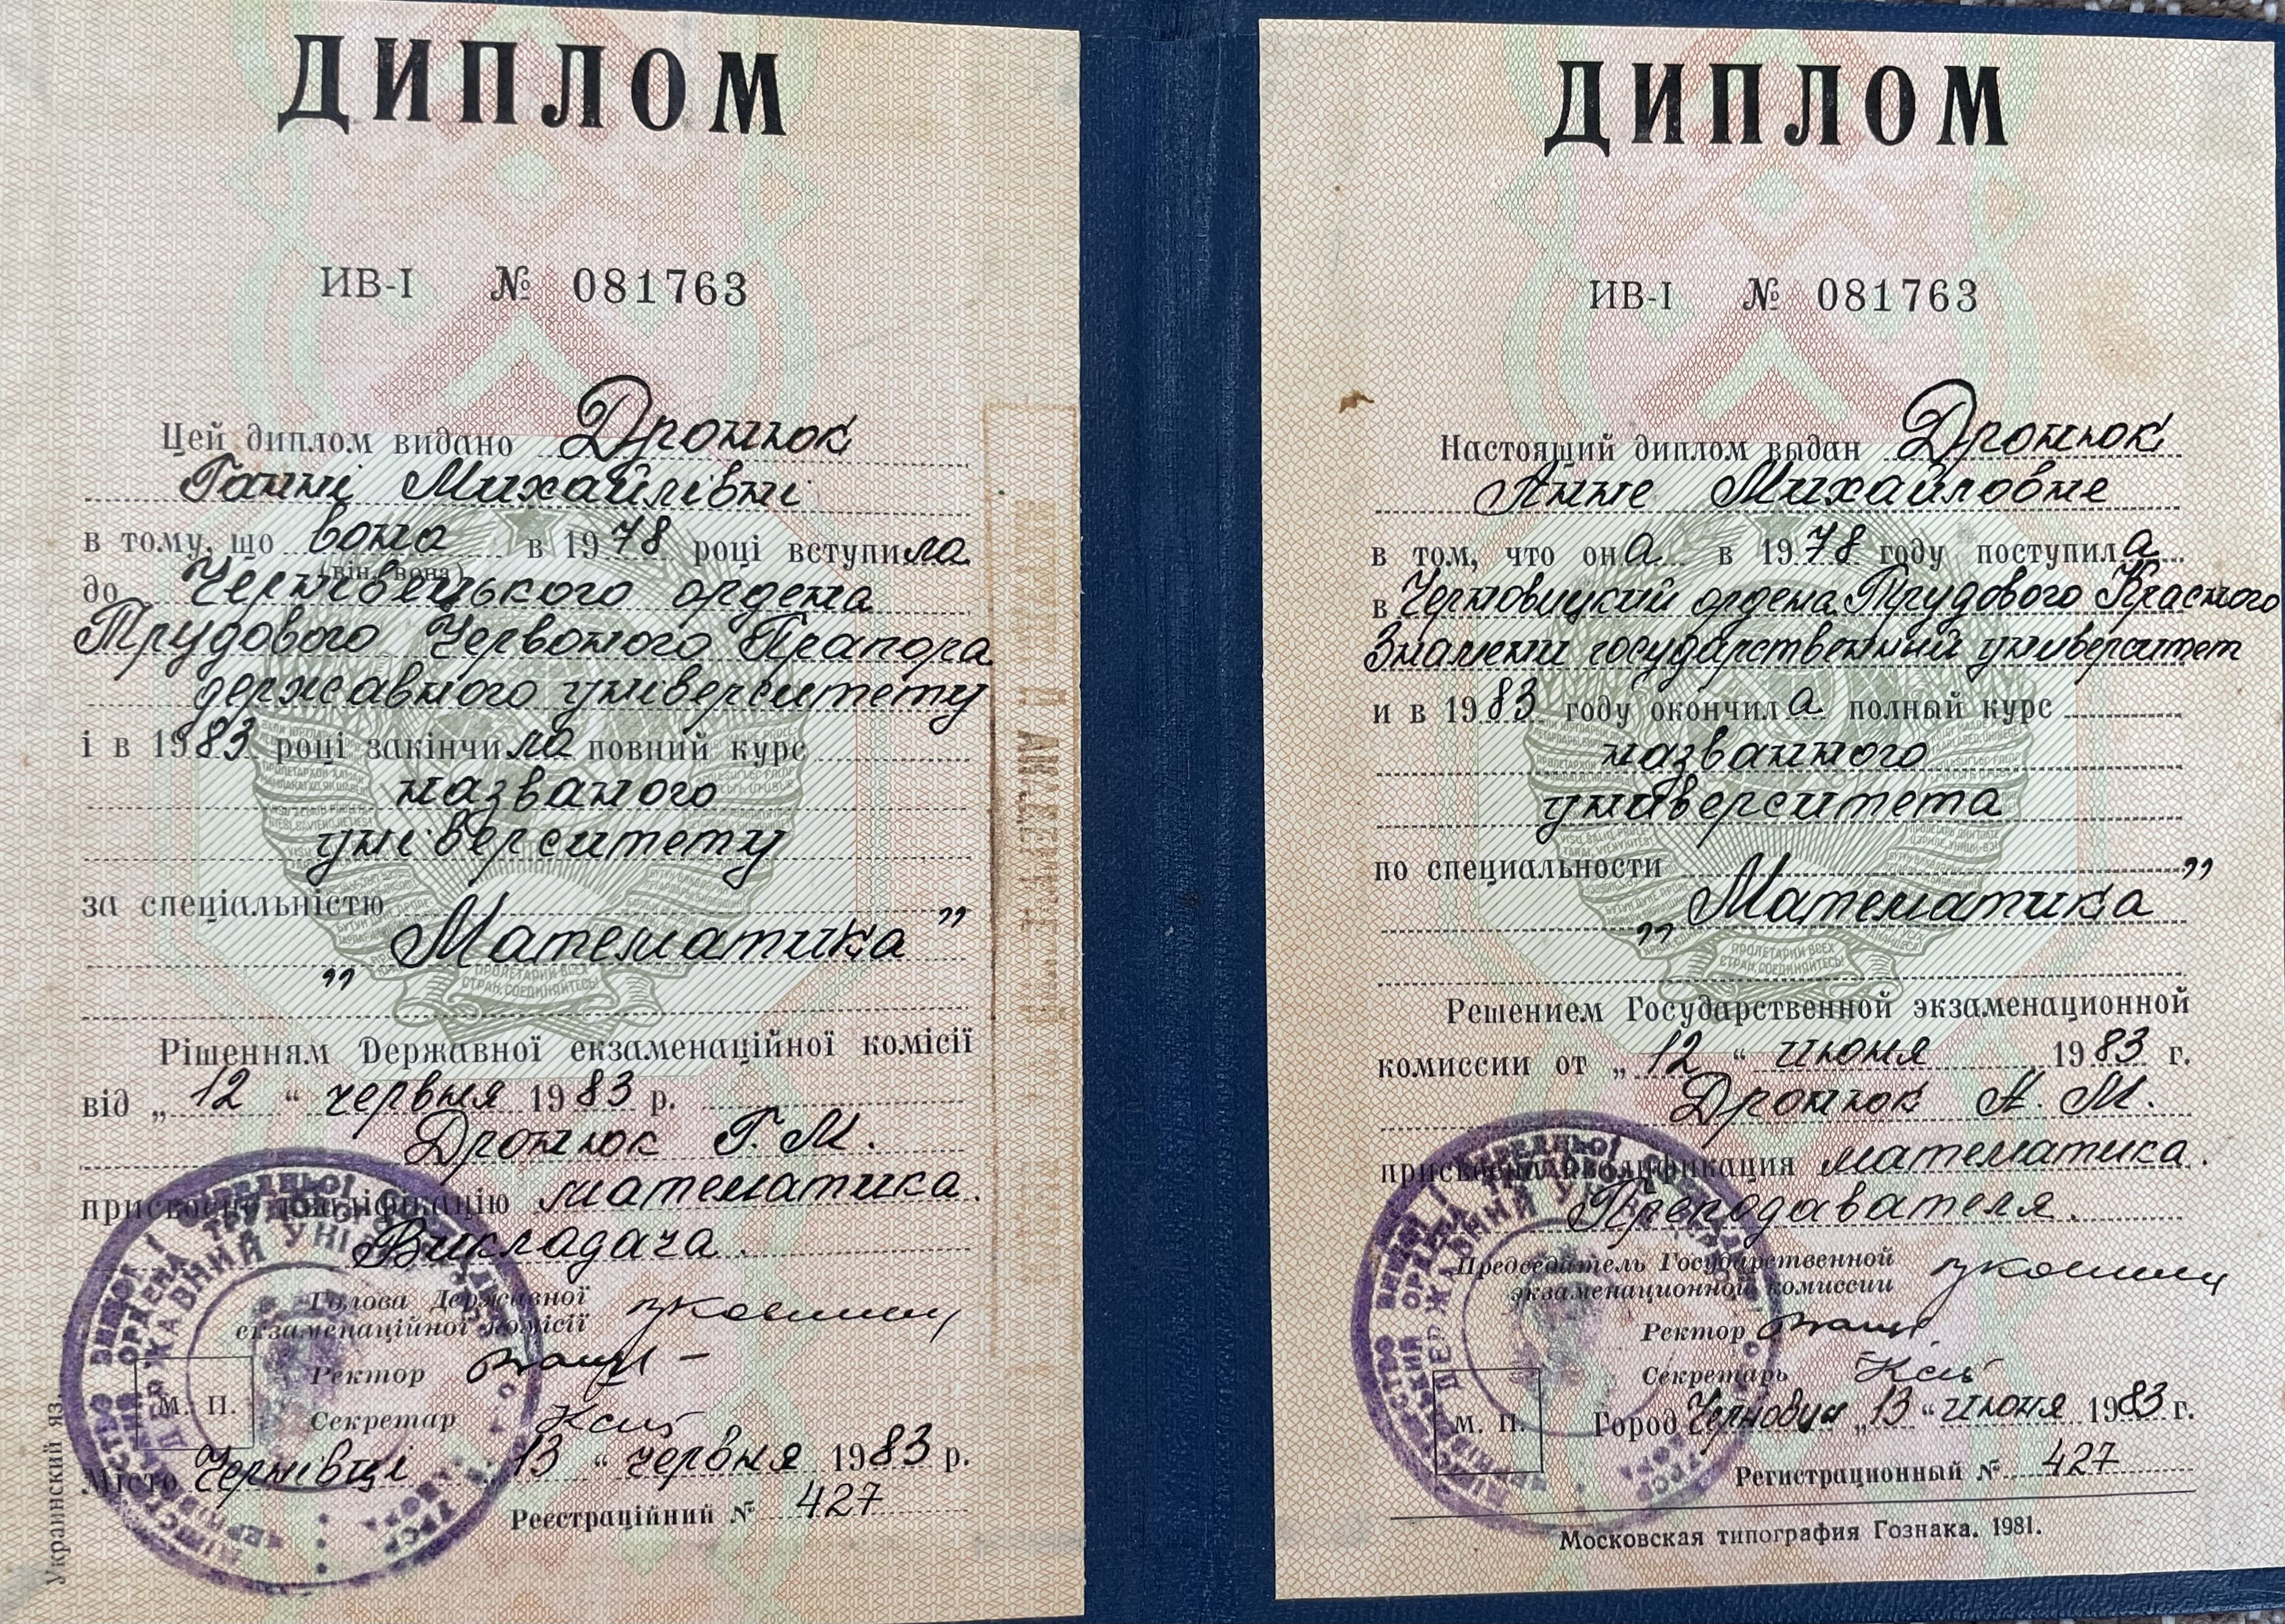 ДИПЛОМ
ИВ-I № 081763
Цей диплом видано Дронюк
Ганні Михайлівні
в тому, що вона в 1978 році вступила
(він, вона)
до Чернівецького ордена
Трудового Червоного Прапора
державного університету
і в 1983 році закінчила повний курс
названого
університету
за спеціальністю
„Математика”
Рішенням Державної екзаменаційної комісії
від „12“ червня 1983 р.
Дронюк Г. М.
присвоєно кваліфікацію математика.
Викладача.
Голова Державної
екзаменаційної комісії
Ректор
Секретар
М. П.
Місто Чернівці „13“ червня 1983 р.
Реєстраційний № 427
Украинский яз.
ПРОЛЕТАРИИ ВСЕХ
СТРАН, СОЕДИНЯЙТЕСЬ!
ДИПЛОМ
ИВ-I № 081763
Настоящий диплом выдан Дронюк
Анне Михайловне
в том, что она в 1978 году поступила
в Черновицкий ордена Трудового Красного
Знамени государственный университет
и в 1983 году окончила полный курс
названного
университета
по специальности
„Математика”
Решением Государственной экзаменационной
комиссии от „12“ июня 1983 г.
Дронюк А. М.
присвоена квалификация математика.
Преподавателя.
Председатель Государственной
экзаменационной комиссии
Ректор
Секретарь
М. П.
Город Черновцы „13“ июня 1983 г.
Регистрационный № 427
Московская типография Гознака. 1981.
ПРОЛЕТАРИИ ВСЕХ
СТРАН, СОЕДИНЯЙТЕСЬ!